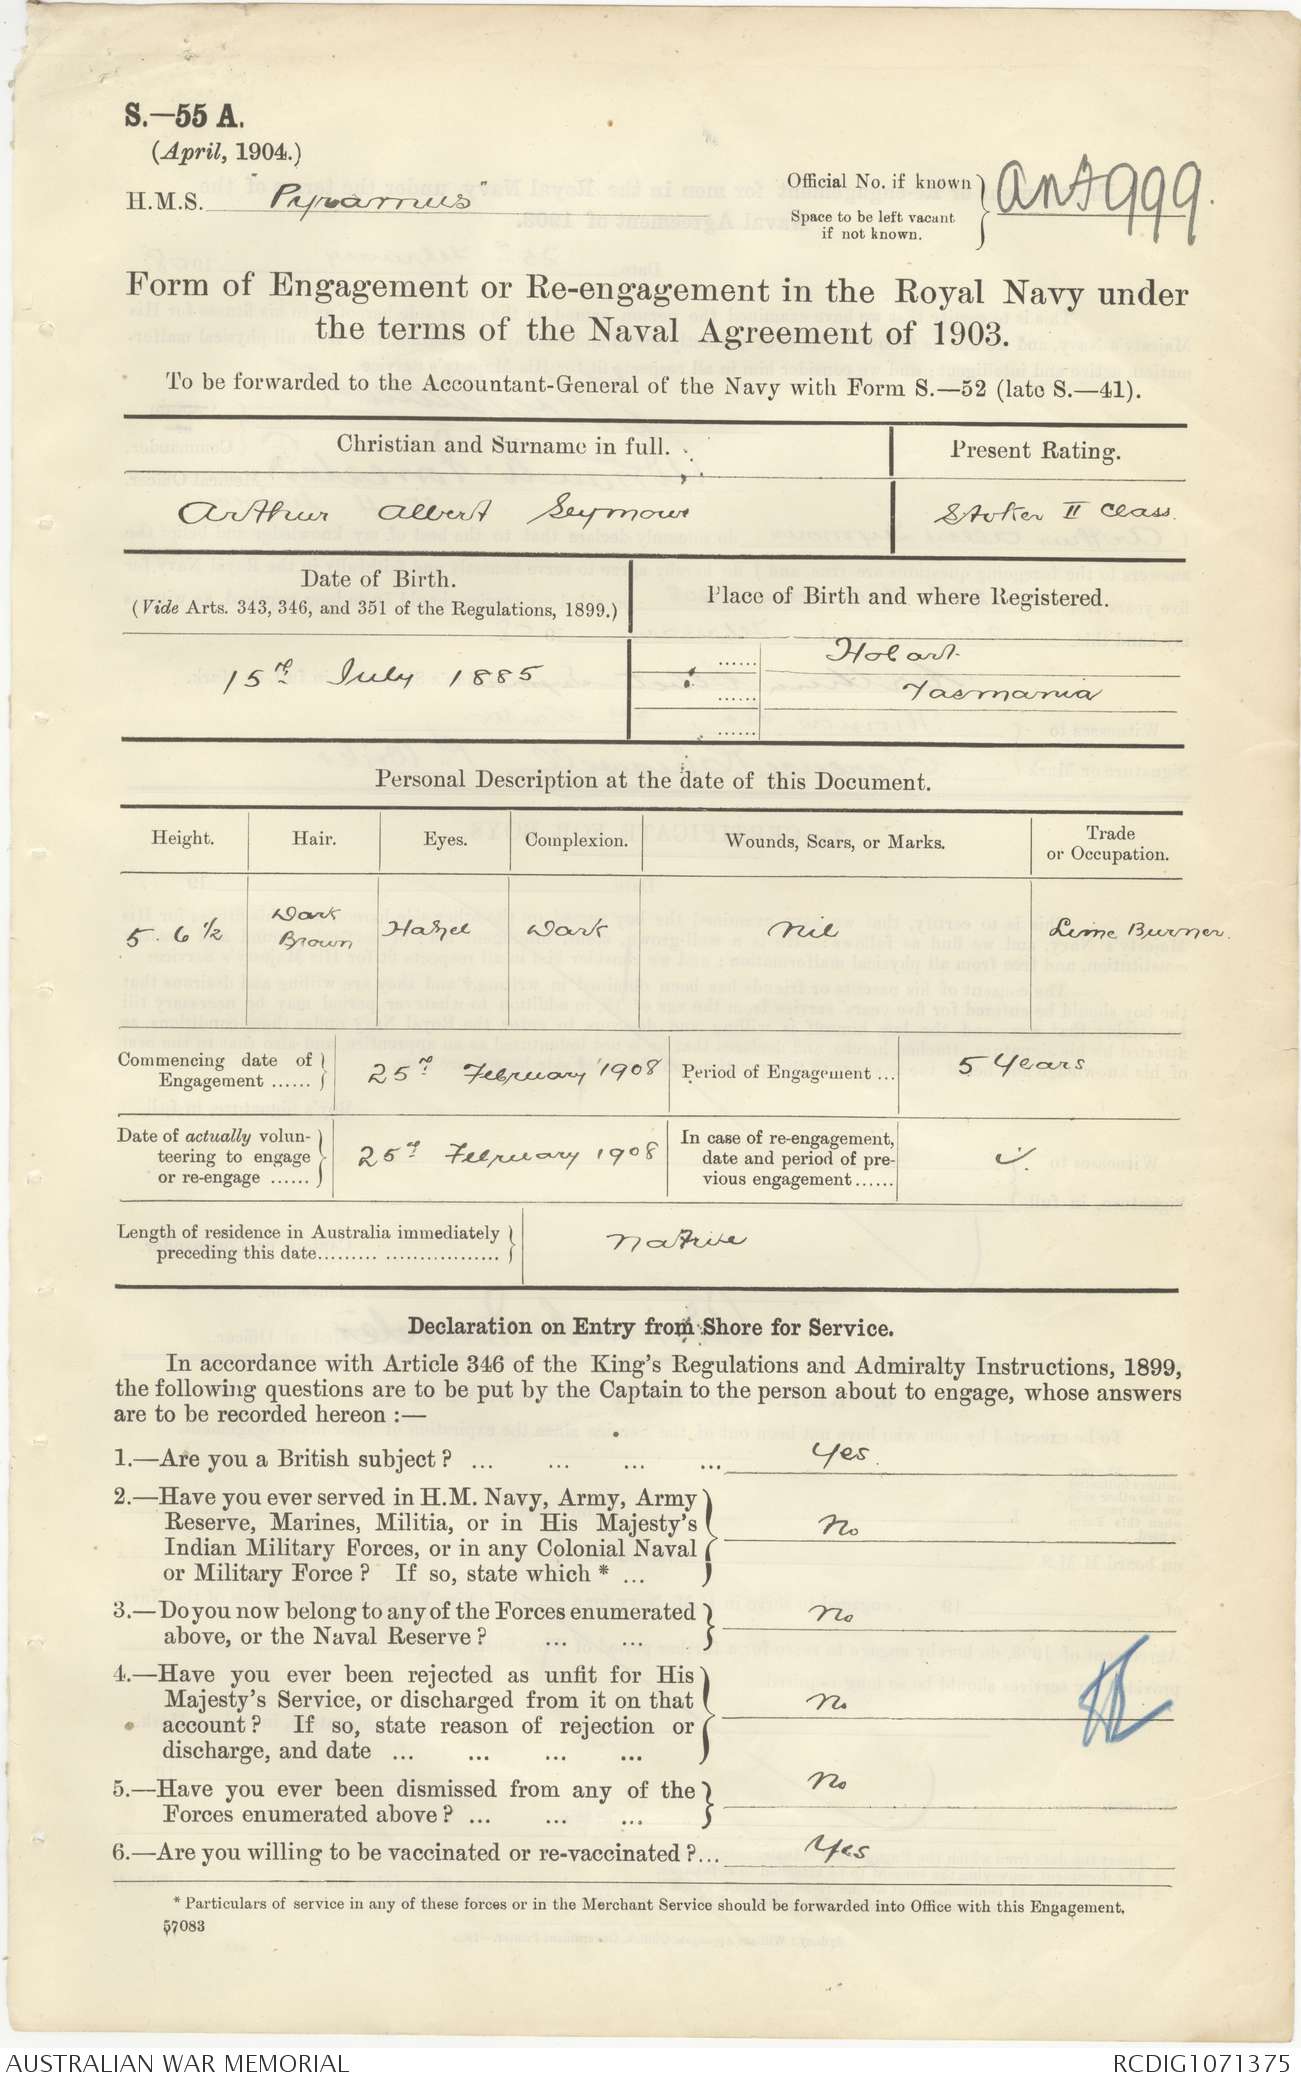 S.—55 A.
(April, 1904.)
H.M.S. "Pyramus"
Official No. if known
Space to be left vacant
if not known.
Ant 999.
Form of Engagement or Re-engagement in the Royal Navy under
the terms of the Naval Agreement of 1903.
To be forwarded to the Accountant-General of the Navy with Form S.—52 (late S.—41).
Christian and Surname in full.
Present Rating.
Arthur Albert Seymour
Stoker II Class.
Date of Birth.
(Vide Arts. 343, 346, and 351 of the Regulations, 1899.)
Place of Birth and where Registered.
15th July 1885
...... Hobart
...... Tasmania
......
Personal Description at the date of this Document.
Height. Hair. Eyes. Complexion. Wounds, Scars, or Marks. Trade
or Occupation.
5. 6 ½ Dark
Brown Hazel Dark Nil Lime Burner.
Commencing date of
Engagement ......
25th February 1908
Period of Engagement ...
5 Years
Date of actually volun-
teering to engage
or re-engage ......
25th February 1908
In case of re-engagement,
date and period of pre-
vious engagement......
Length of residence in Australia immediately
preceding this date......... .................
Native
Declaration on Entry from Shore for Service.
In accordance with Article 346 of the King's Regulations and Admiralty Instructions, 1899,
the following questions are to be put by the Captain to the person about to engage, whose answers
are to be recorded hereon :—
1.—Are you a British subject ? ... ... ... ... Yes.
2.—Have you ever served in H.M. Navy, Army, Army
Reserve, Marines, Militia, or in His Majesty's
Indian Military Forces, or in any Colonial Naval
or Military Force ? If so, state which * ...
No
3.—Do you now belong to any of the Forces enumerated
above, or the Naval Reserve ? ... ...
No
4.—Have you ever been rejected as unfit for His
Majesty's Service, or discharged from it on that
account ? If so, state reason of rejection or
discharge, and date ... ... ... ...
No
5.—Have you ever been dismissed from any of the
Forces enumerated above ? ... ... ...
No
6.—Are you willing to be vaccinated or re-vaccinated ?... Yes
* Particulars of service in any of these forces or in the Merchant Service should be forwarded into Office with this Engagement.
57083
AUSTRALIAN WAR MEMORIAL
RCDIG1071375